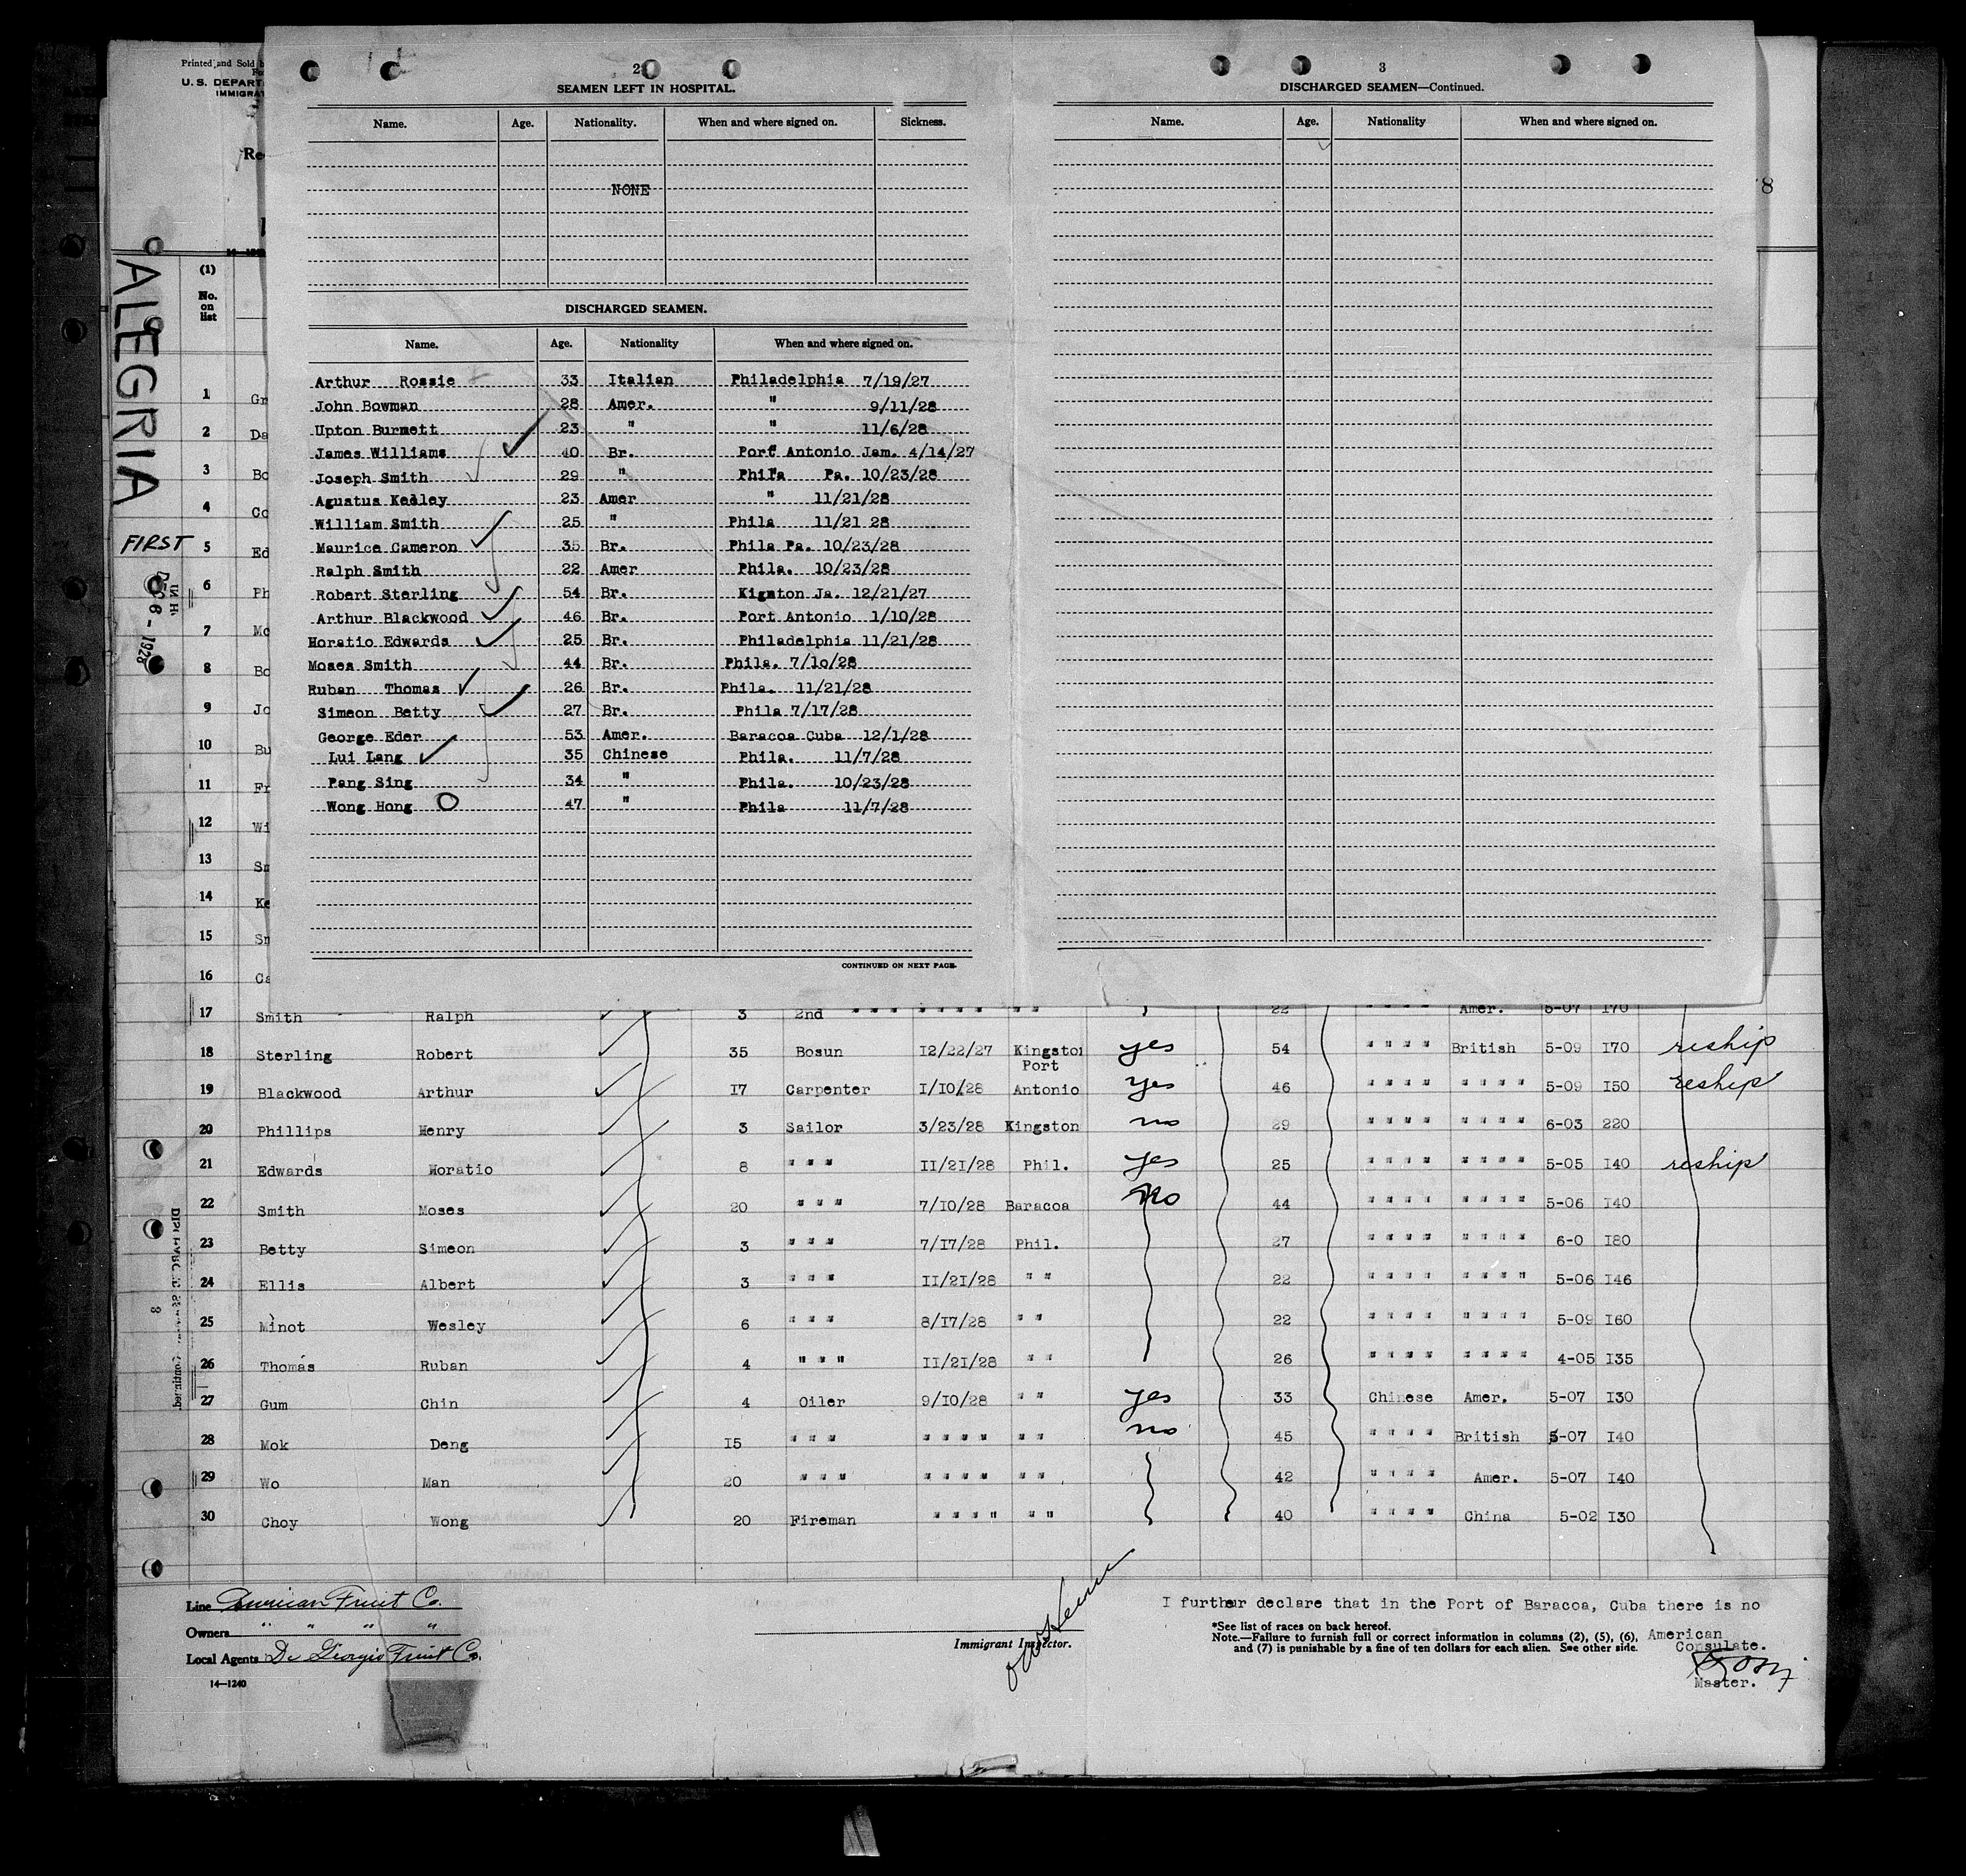 Printed and Sold b
U. S. DEPART
IMMIGRA
Re
ALEGRIA
FIRST
2
SEAMEN LEFT IN HOSPITAL.
Name. Age. Nationality. When and where signed on. Sickness.
NONE
DISCHARGED SEAMEN.
Name. Age. Nationality When and where signed on.
Arthur Rossie 33 Italian Philadelphia 7/19/27
John Bowman 28 Amer. " 9/11/28
Upton Burmett 23 " " 11/6/28
James Williams 40 Br. Port Antonio Jam. 4/14/27
Joseph Smith 29 " Phila Pa. 10/23/28
Agustus Kelley 23 Amer " 11/21/28
William Smith 25 " Phila 11/21 28
Maurice Cameron 35 Br. Phila Pa. 10/23/28
Ralph Smith 22 Amer Phila. 10/23/28
Robert Sterling 54 Br. Kignton Ja. 12/21/27
Arthur Blackwood 46 Br. Port Antonio 1/10/28
Horatio Edwards 25 Br. Philadelphia 11/21/28
Moses Smith 44 Br. Phila. 7/10/28
Ruban Thomas 26 Br. Phila. 11/21/28
Simeon Betty 27 Br. Phila 7/17/28
George Eder 53 Amer. Baracoa Cuba 12/1/28
Lui Lang 35 Chinese Phila. 11/7/28
Pang Sing 34 " Phila. 10/23/28
Wong Hong 47 " Phila 11/7/28
CONTINUED ON NEXT PAGE.
3
DISCHARGED SEAMEN—Continued.
Name. Age. Nationality When and where signed on.
8
(1)
No.
on
list
1 Gr
2 Da
3 Bo
4 Co
5 Ed
6 Ph
7 Mo
8 Bo
9 Jo
10 Bu
11 Fr
12 Wi
13 Sm
14 Ke
15 Sm
16 Ca
17 Smith Ralph 3 2nd " " " " " " " " " 22 " " " " Amer. 5-07 170
18 Sterling Robert 35 Bosun 12/22/27 Kingston yes 54 " " " " British 5-09 170 reship
Port
19 Blackwood Arthur 17 Carpenter 1/10/28 Antonio yes 46 " " " " " " " " 5-09 150 reship
20 Phillips Henry 3 Sailor 3/23/28 Kingston no 29 " " " " " " " " 6-03 220
21 Edwards Horatio 8 " " " 11/21/28 Phil. yes 25 " " " " " " " " 5-05 140 reship
22 Smith Moses 20 " " " 7/10/28 Baracoa No 44 " " " " " " " " 5-06 140
23 Betty Simeon 3 " " " 7/17/28 Phil. 27 " " " " " " " " 6-0 180
24 Ellis Albert 3 " " " 11/21/28 " " 22 " " " " " " " " 5-06 146
25 Minot Wesley 6 " " " 8/17/28 " " 22 " " " " " " " " 5-09 160
26 Thomas Ruban 4 " " " 11/21/28 " " 26 " " " " " " " " 4-05 135
27 Gum Chin 4 Oiler 9/10/28 " " yes 33 Chinese Amer. 5-07 130
28 Mok Deng 15 " " " " " " " " " no 45 " " " " British 5-07 140
29 Wo Man 20 " " " " " " " " " 42 " " " " Amer. 5-07 140
30 Choy Wong 20 Fireman " " " " " " 40 " " " " China 5-02 130
Line American Fruit Co.
Owners " " " "
Local Agents Di Giorgio Fruit Co.
14—1240
Immigrant Inspector.
I further declare that in the Port of Baracoa, Cuba there is no
American
Consulate.
*See list of races on back hereof.
Note.—Failure to furnish full or correct information in columns (2), (5), (6),
and (7) is punishable by a fine of ten dollars for each alien. See other side.
Master.